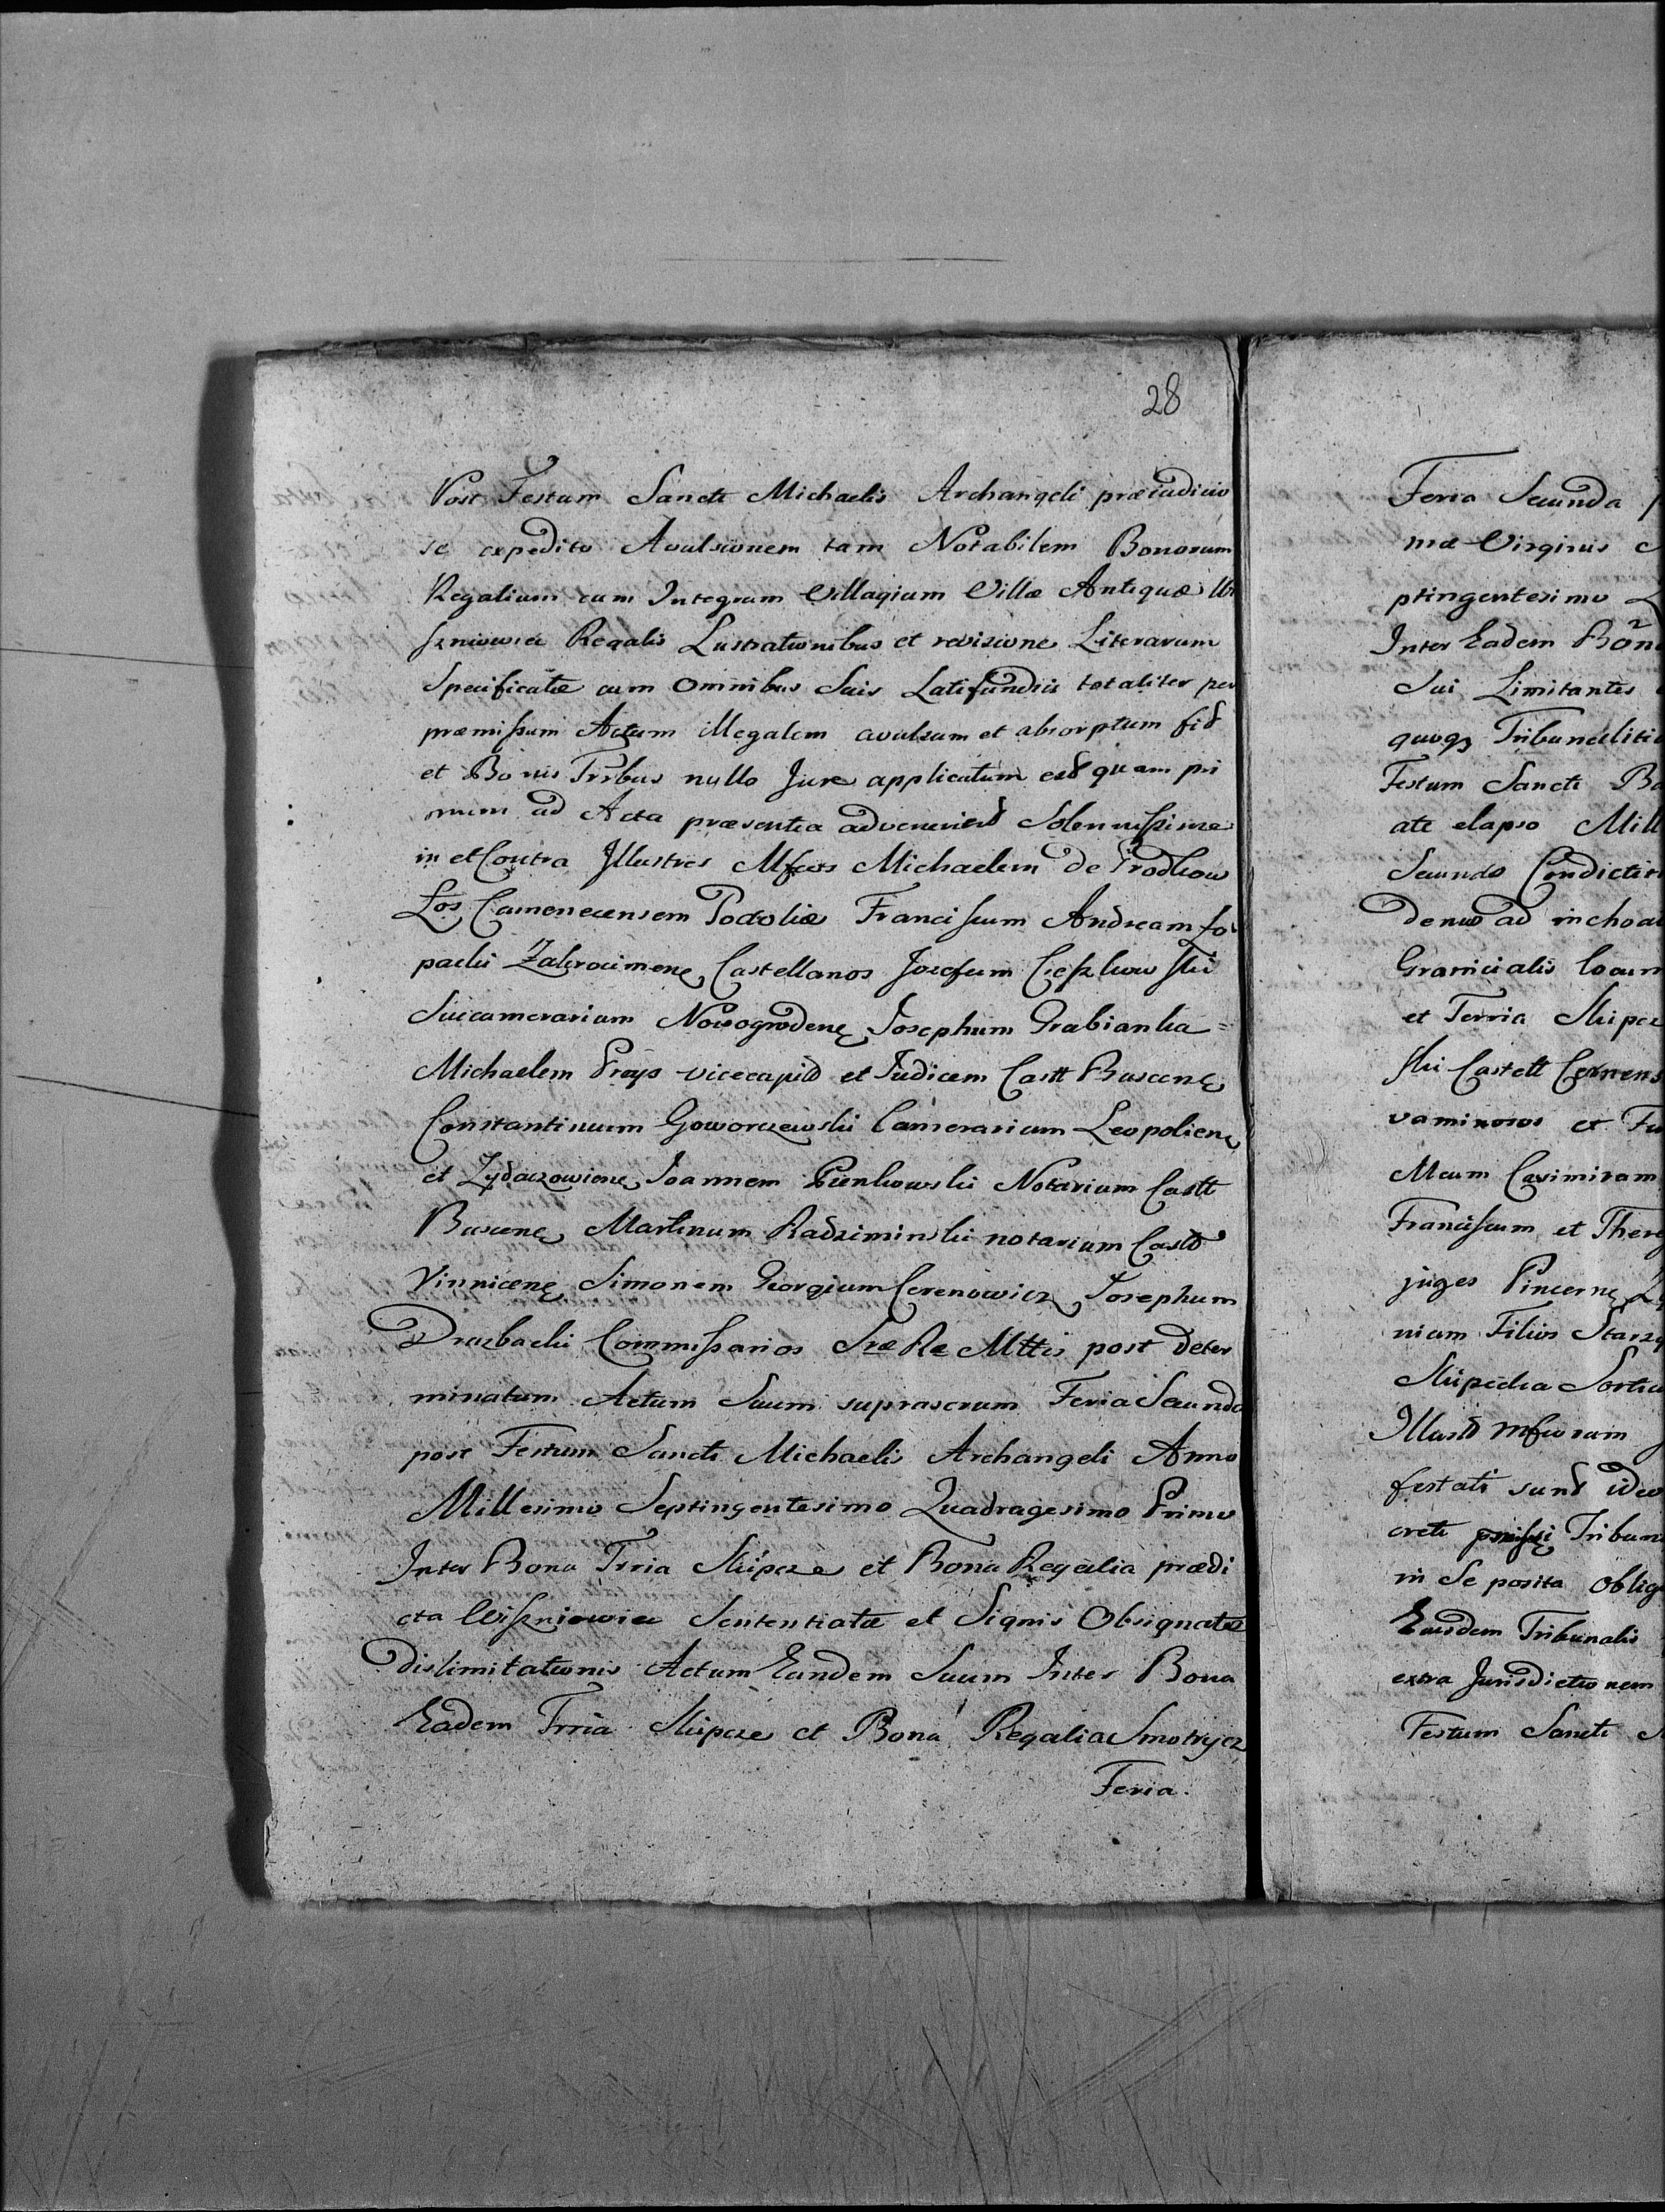 28
Post Festum Sancti Michaelis Archangeli præiudicio
se expedito Avulsionem tam Notabilem Bonorum
Regalium cum Integrum Villagium Villæ Antiquæ Wi
szniowca Regalis Lustrationibus et revisione Literarum
Specificatæ cum Omnibus Suis Latifundiis totaliter per
præmissum Actum illegalem avulsum et absorptum fit
et Bonis Trribus nullo Jure applicatum est quam pri
mum ad Acta præsentia advenerint Solennissime
in et Contra Illustres Mfcos Michaelem de Prodkow
Łos Camenecensem Podoliæ Franciscum Andream Ło
packi Zakrocimens Castellanos Josefum Cieszkowski
Succamerarium Nowogrodens Josephum Grabianka =
Michaelem Prays vicecapit et Judicem Castt Buscens
Constantinum Goworczewski Camerarium Leopoliens
et Zydaczowiens Joannem Pienkowski Notarium Castt
Buscens Martinum Radziminski notarium Castt
Vinnicens Simonem Georgium Cerenowicz Josephum
Druzbacki Commissarios Sræ Ræ Mttis post deter
minatum Actum Suum suprascrum Feria Secunda
post Festum Sancti Michaelis Archangeli Anno
Millesimo Septingentesimo Quadragesimo Primo
Inter Bona Trria Skipcze et Bona Regalia prædi
cta Wiszniowiec Sententiatæ et Signis Obsignatæ
dislimitationis Actum Eundem Suum Inter Bona
Eadem Trria Skipcze et Bona Regalia Smotrycz
Feria.
Feria Secunda p
mæ Virginis
ptingentesimo
Inter Eadem Bon
Sui Limitantes
quoq Tribunaliti
Festum Sancti Ba
ate elapso Mill
Secundo Condicti
denuo ad inchoa
Granicialis locum
et Terria Skipcz
ski Castell Camens
vaminosos et Fu
Meum Casimiram
Franciscum et There
juges Pincernæ
nium Filios Starzy
Skipecka Sortiu
Illust Mfcorum
festati sunt ideo
creti Tribun
in Se posita oblig
Eiusdem Tribunalis
extra Jurisdictionem
Festum Sancti